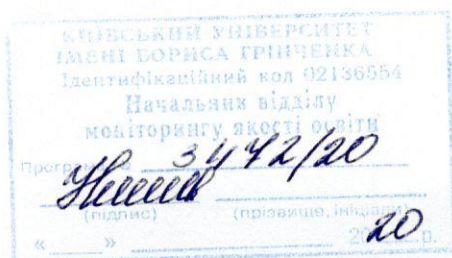 КИЇВСЬКИЙ УНІВЕРСИТЕТ
ІМЕНІ БОРИСА ГРІНЧЕНКА
Ідентифікаційний код 02136554
Начальник відділу
моніторингу якості освіти
Програма № 3472/20
(підпис) (прізвище, ініціали)
« » 2020 р.